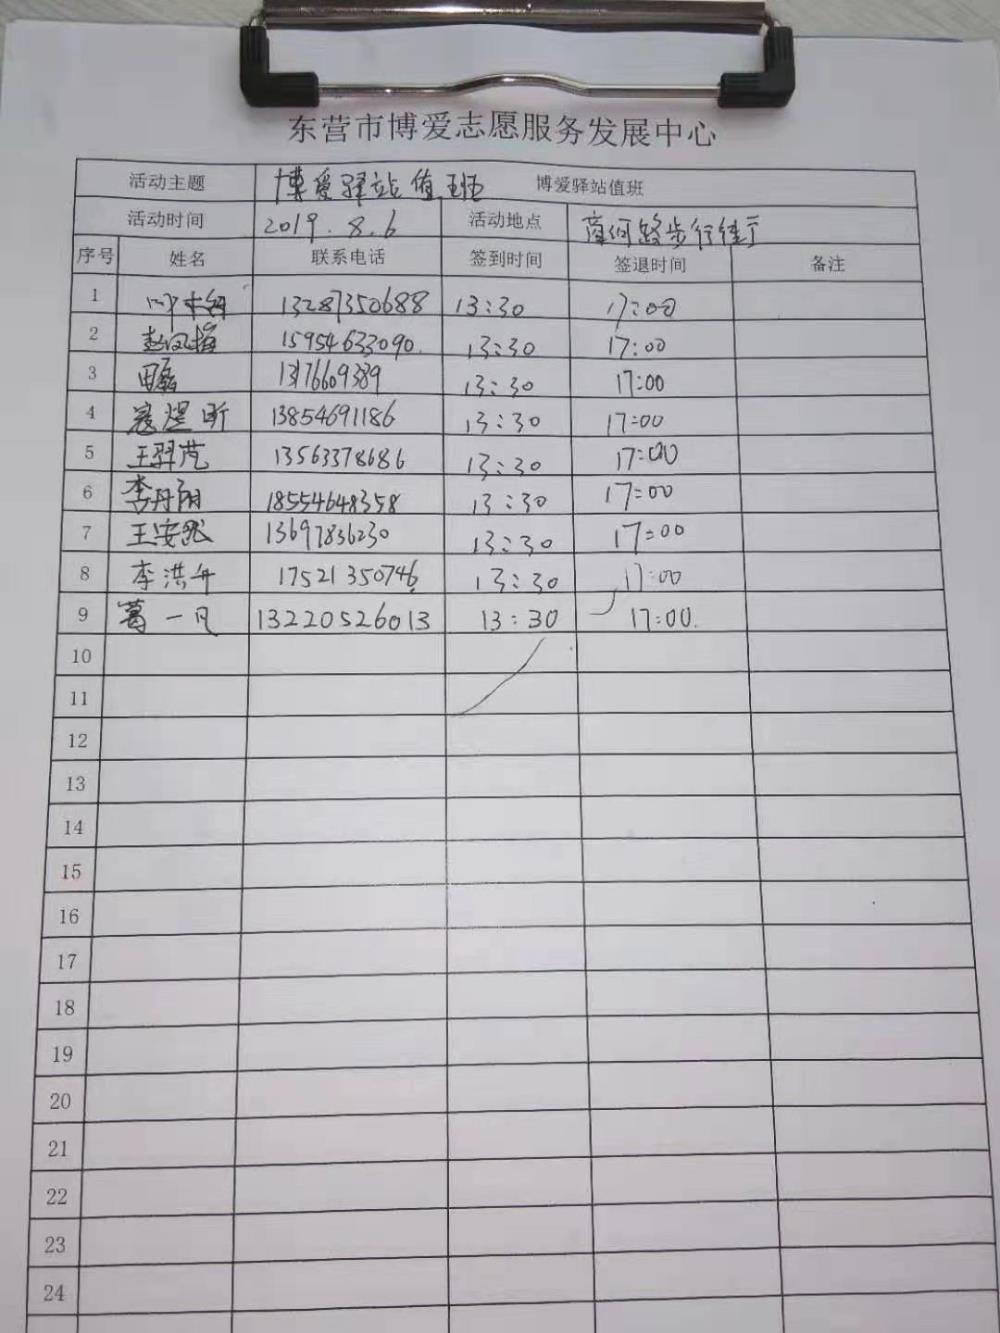 东营市博爱志愿服务发展中心
活动主题 博爱驿站值班 博爱驿站值班
活动时间 2019.8.6 活动地点 商河路步行街
序号 姓名 联系电话 签到时间 签退时间 备注
1 13287350688 13:30 17:00
2 赵凤梅 15954633090 13:30 17:00
3 田磊 13:30 17:00
4 寇煜昕 13854691186 13:30 17:00
5 王羿 13563378686 13:30 17:00
6 李丹阳 18554648358 13:30 17:00
7 王安然 13697836230 13:30 17:00
8 李洪舟 17521350746 13:30 17:00
9 葛一凡 13220526013 13:30 17:00
10
11
12
13
14
15
16
17
18
19
20
21
22
23
24